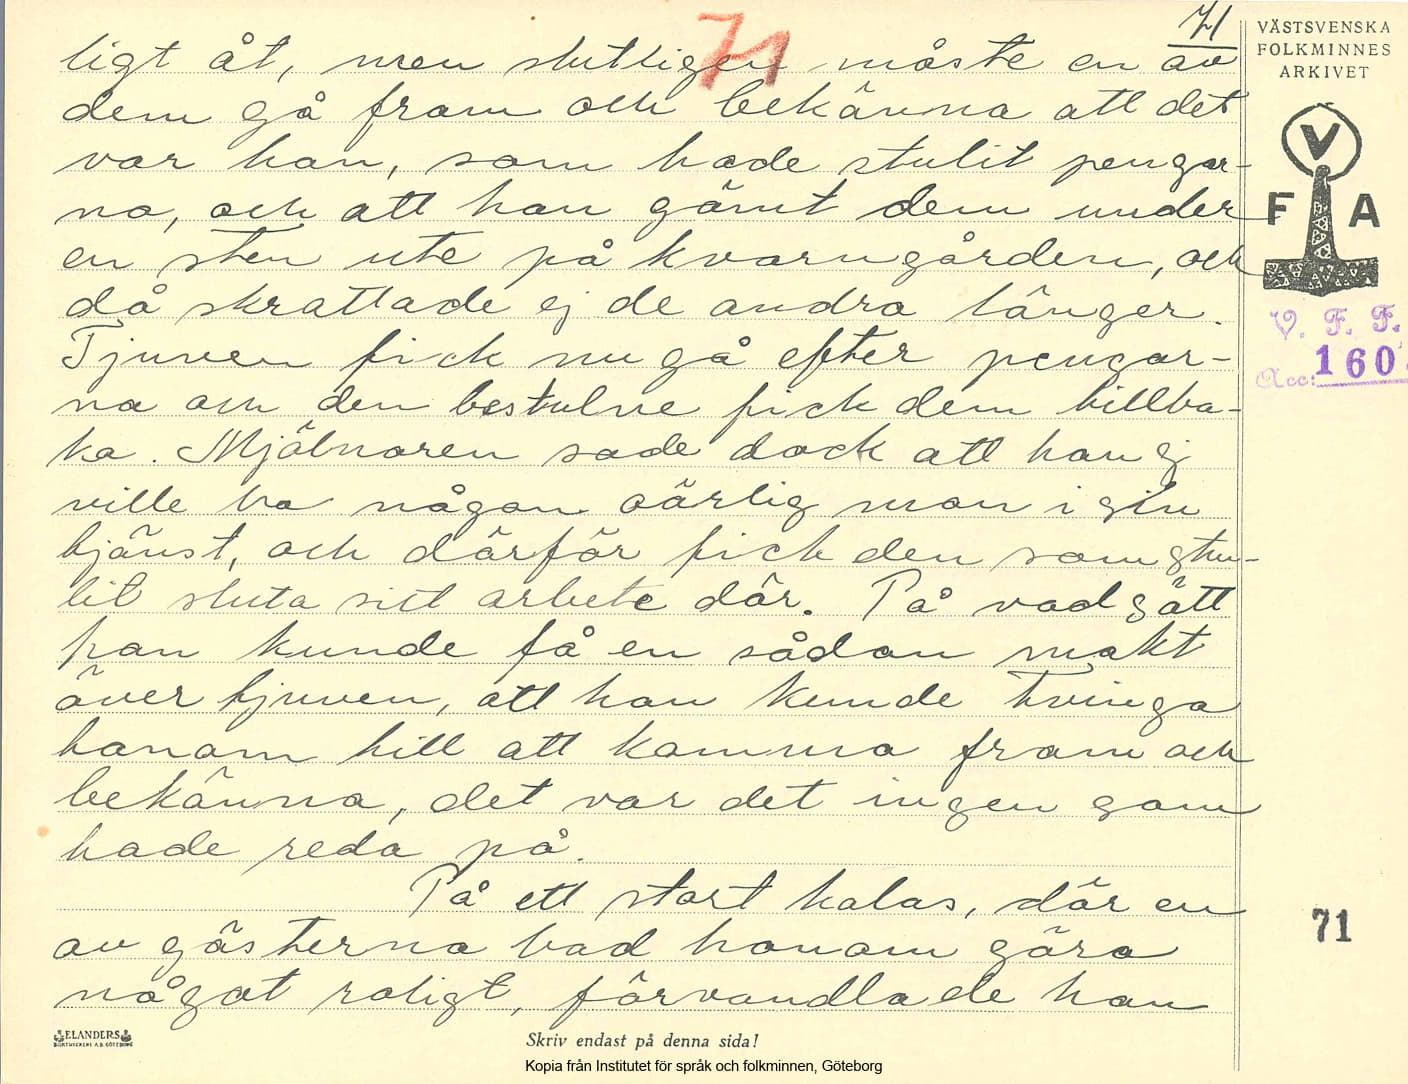 71
71
VÄSTSVENSKA
FOLKMINNES
ARKIVET
V
F A
V. F. F.
Acc: 160
ligt åt, men slutligen måste en av
dem gå fram och bekänna att det
var han, som hade stulit pengar-
na, och att han gömt dem under
en sten ute på kvarngården, och
då skrattade ej de andra länger.
Tjuven fick nu gå efter pengar-
na och den bestulne fick dem tillba-
ka. Mjölnaren sade dock att han ej
ville ha någon oärlig man i sin
tjänst, och därför fick den som stu-
lit sluta sitt arbete där. På vad sätt
han kunde få en sådan makt
över tjuven, att han kunde tvinga
honom till att komma fram och
bekänna, det var det ingen som
hade reda på.
På ett stort kalas, där en
av gästerna bad honom göra
något roligt, förvandlade han
71
ELANDERS
BOKTRYCKERI A.B. GÖTEBORG
Skriv endast på denna sida!
Kopia från Institutet för språk och folkminnen, Göteborg